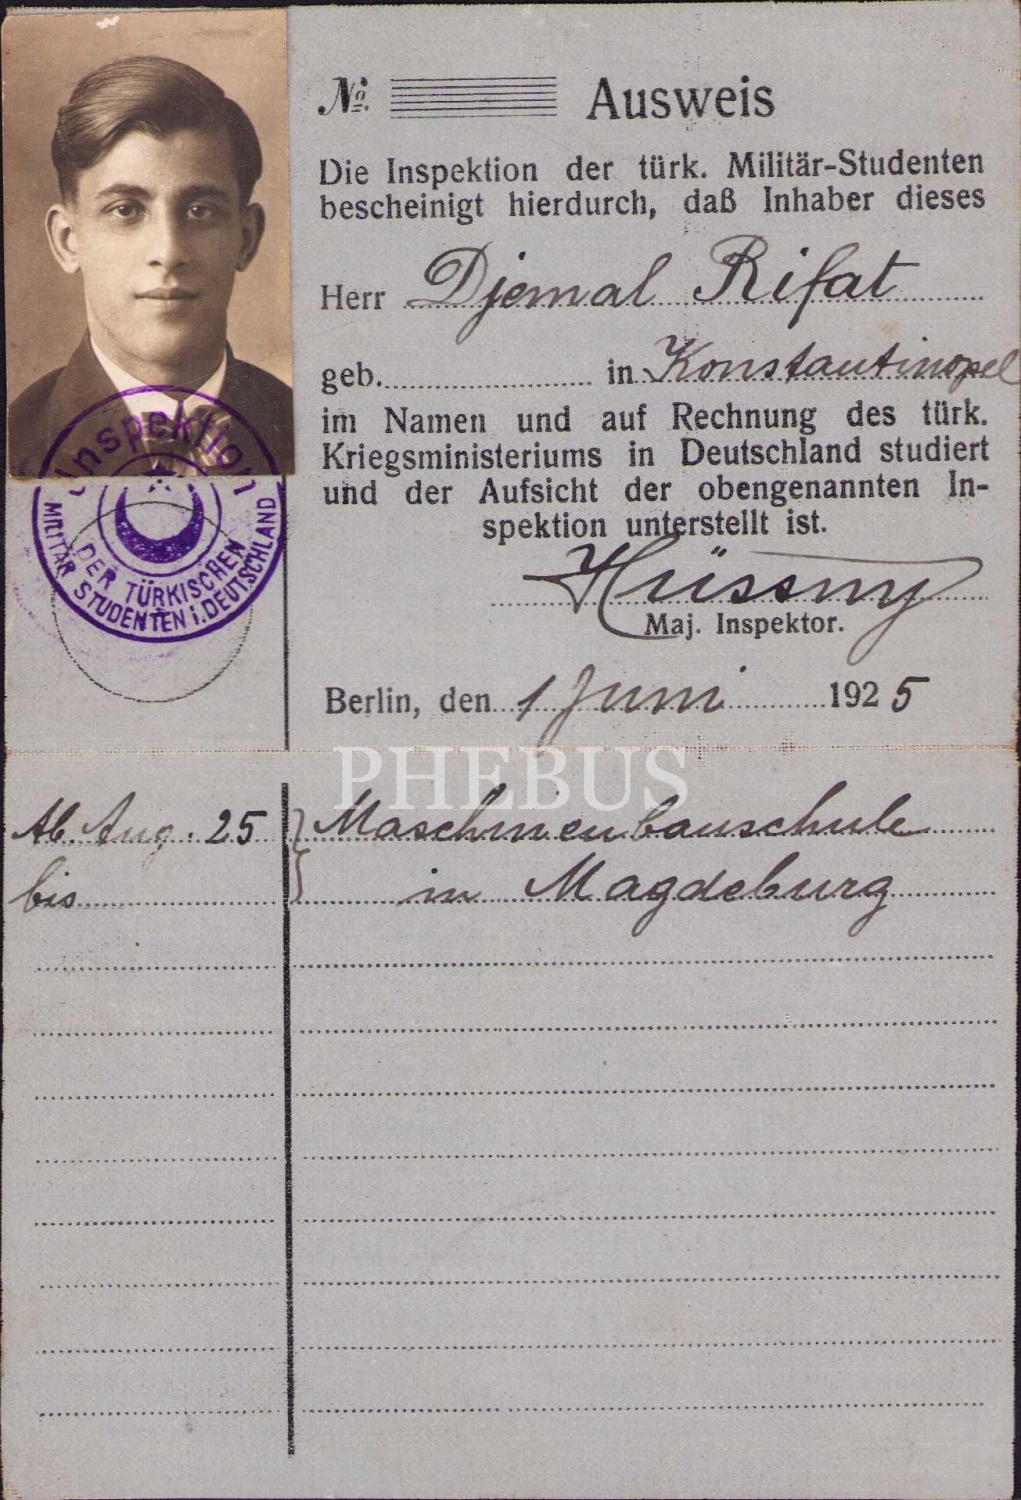 № Ausweis
Die Inspektion der türk. Militär-Studenten
bescheinigt hierdurch, daß Inhaber dieses
Herr Djemal Rifat
geb. in Konstantinopel
im Namen und auf Rechnung des türk.
Kriegsministeriums in Deutschland studiert
und der Aufsicht der obengenannten In-
spektion unterstellt ist.
Hüssny
Maj. Inspektor.
Berlin, den 1 Juni 1925
Inspektion
DER TÜRKISCHEN
MILITÄR STUDENTEN i. DEUTSCHLAND
PHEBUS
Ab. Aug. 25 } Maschinenbauschule
bis in Magdeburg